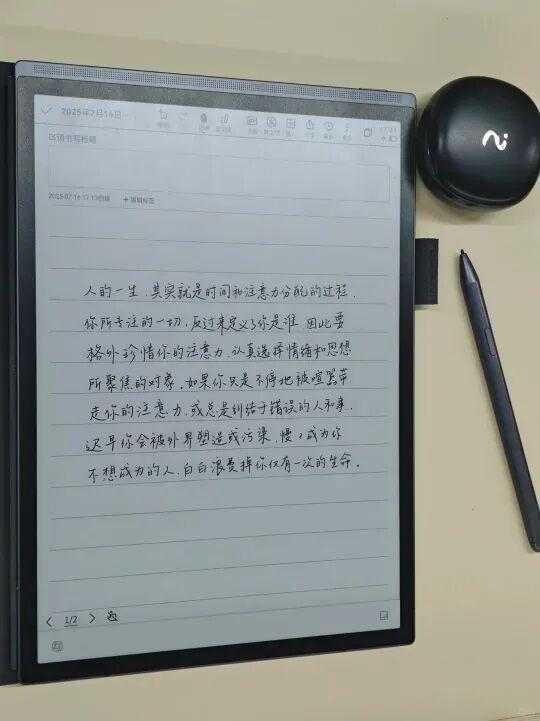 2025年7月16日
17:23
请书写标题
2025-07-16 17:13创建 +编辑标签
人的一生，其实就是时间和注意力分配的过程，
你所专注的一切，反过来定义了你是谁，因此要
格外珍惜你的注意力，认真选择情绪和思想
所聚焦的对象，如果你只是不停地被喧嚣带
走你的注意力，或总是纠结于错误的人和事，
迟早你会被外界塑造或污染，慢々成为你
不想成为的人，白白浪费掉你仅有一次的生命。
1/2